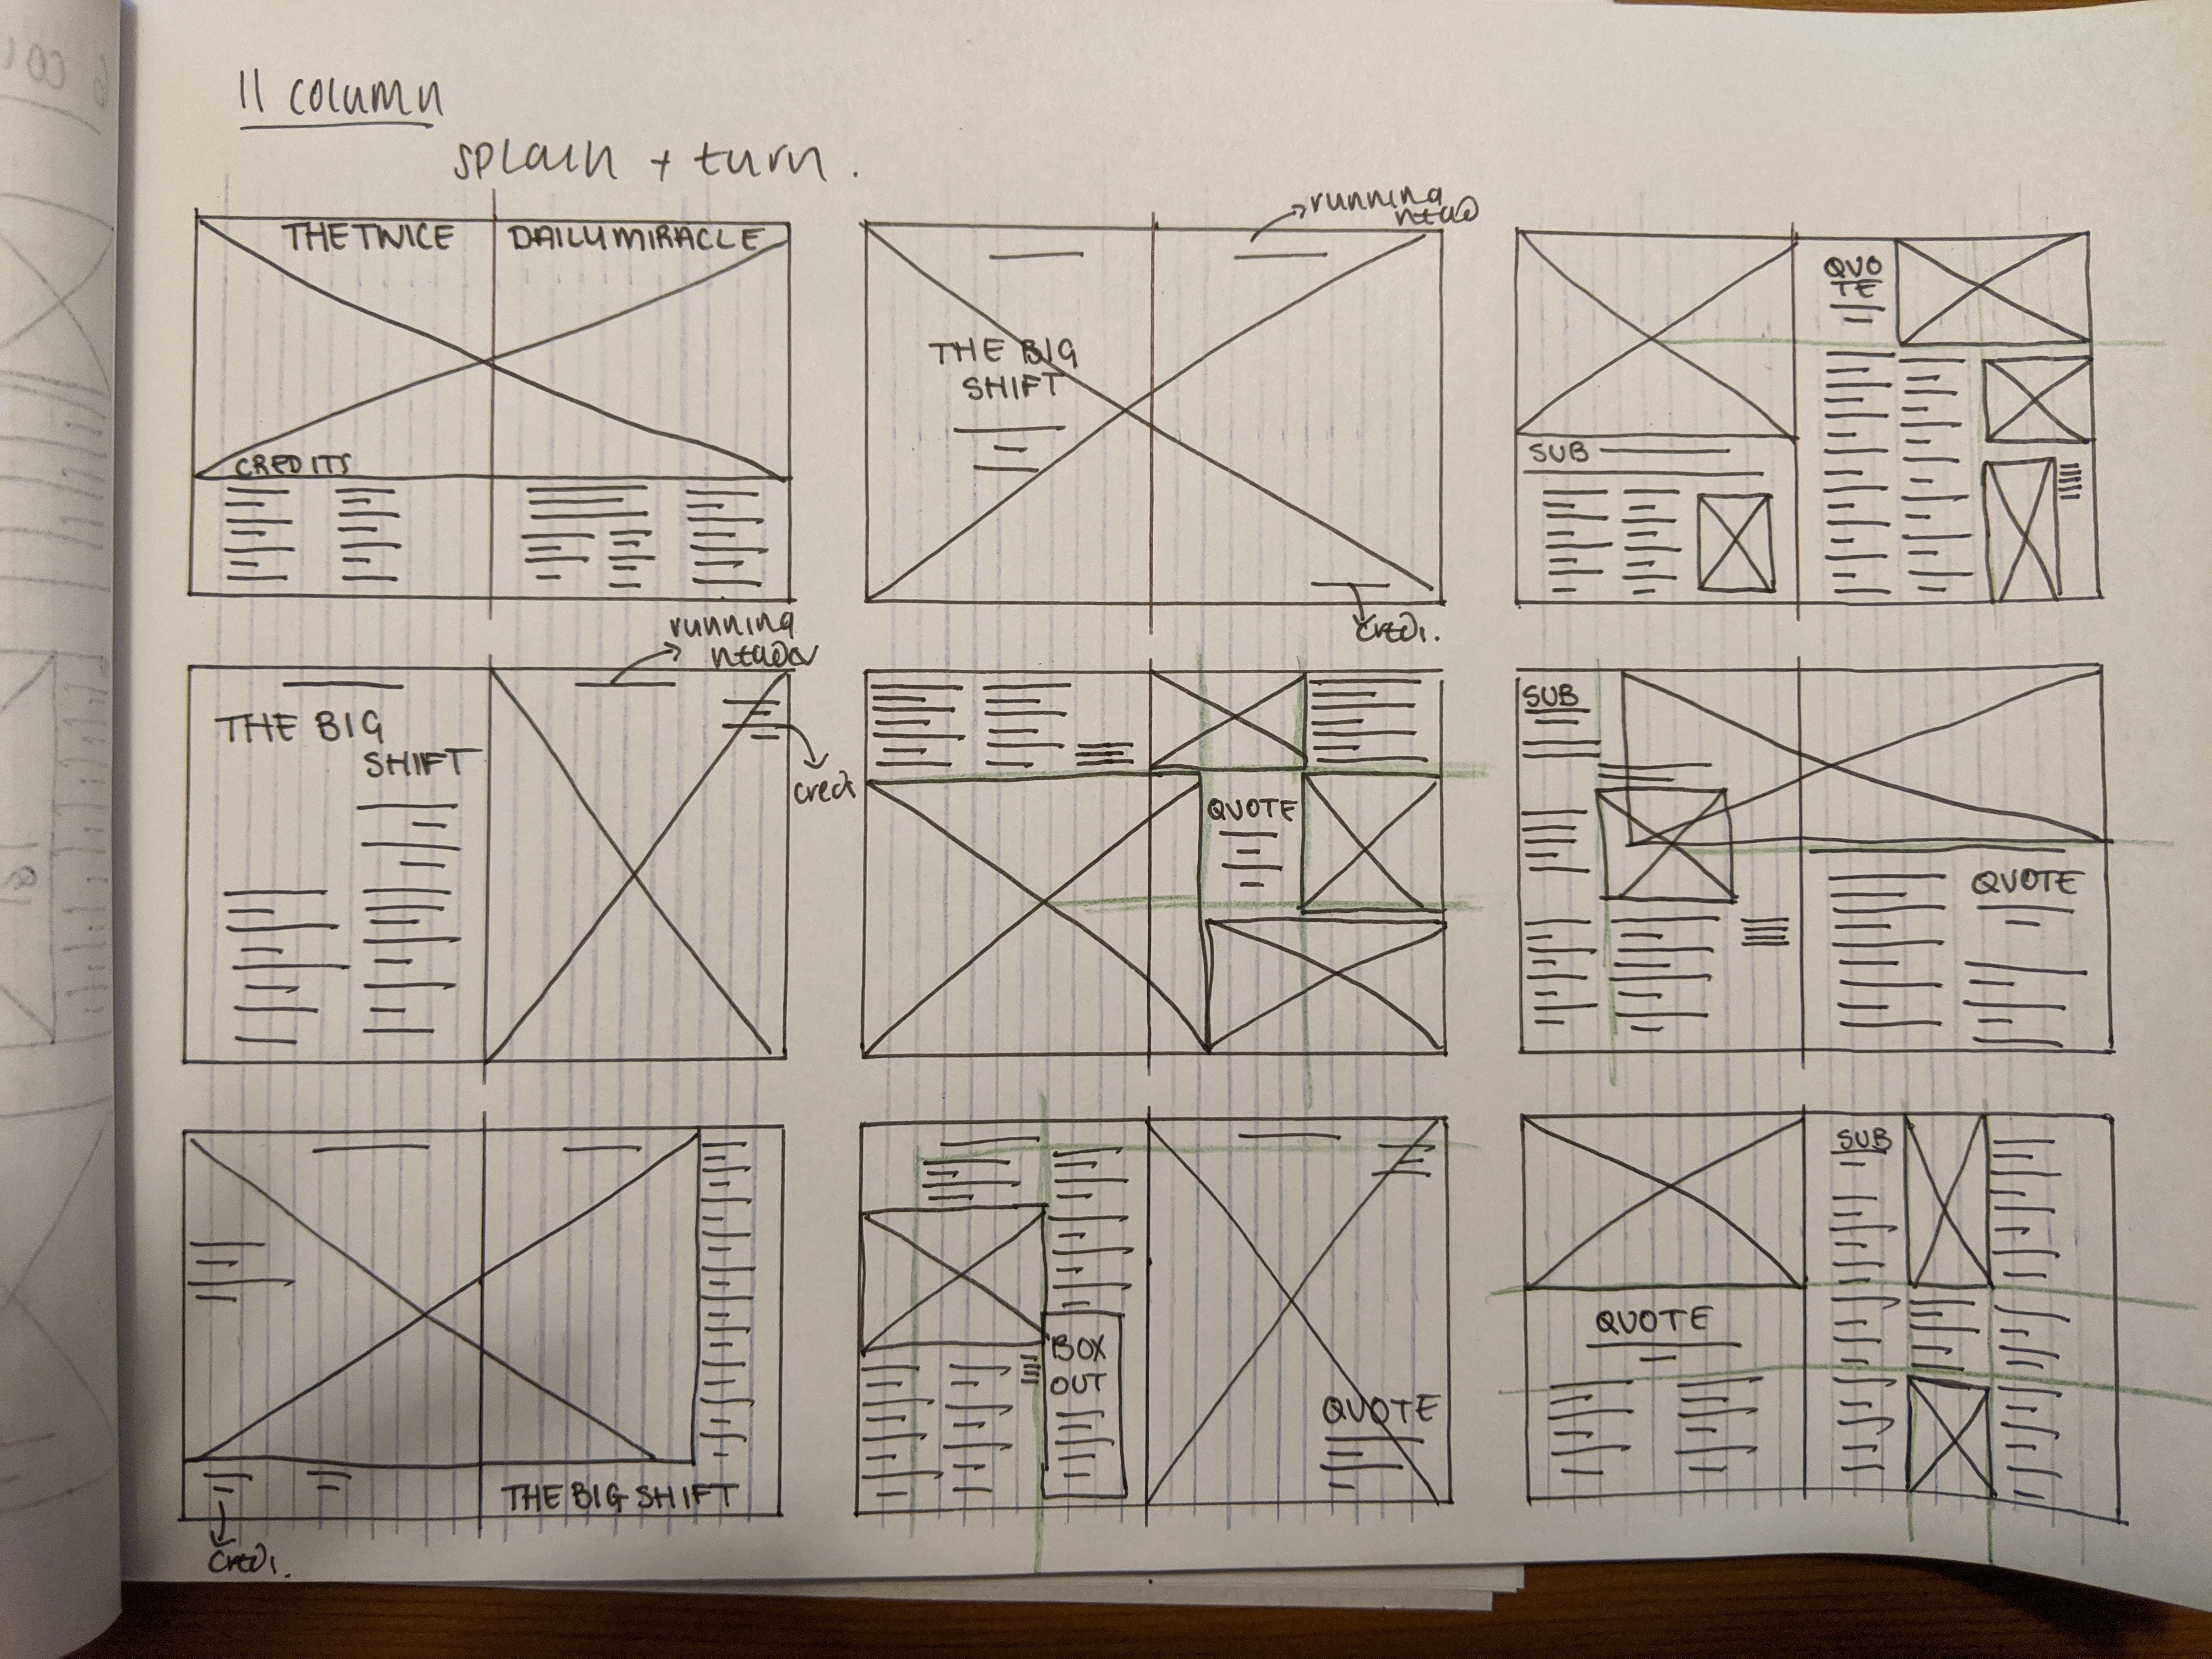 11 column
splash + turn.
THE TWICE DAILY MIRACLE
CREDITS
running
head
THE BIG
SHIFT
credi.
QUO
TE
SUB
running
header
THE BIG
SHIFT
credi
QUOTE
SUB
QUOTE
THE BIG SHIFT
credi.
BOX
OUT
QUOTE
SUB
QUOTE